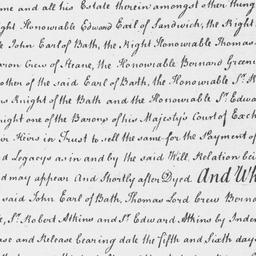 me and all his Estate therein amongst other thing
ght Honourable Edward Earl of Sandwich, the Right
le John Earl of Bath, the Right Honourable Thomas
aron Crew of Steane, the Honourable Bernard Greenv
other of the said Earl of Bath, the Honourable Sr. R
s Knight of the Bath and the Honourable Sr. Edwa
night one of the Barons of his Majesty's Court of Exch
r Heirs in Trust to sell the same for the Payment of
d Legacys as in and by the said Will, Relation bei
d may appear And Shortly after Dyed. And Wh
said John Earl of Bath, Thomas Lord Crew Berna
e, Sr. Robert Atkins and Sr. Edward Atkins by Inden
ase and Release bearing date the fifth and Sixth days